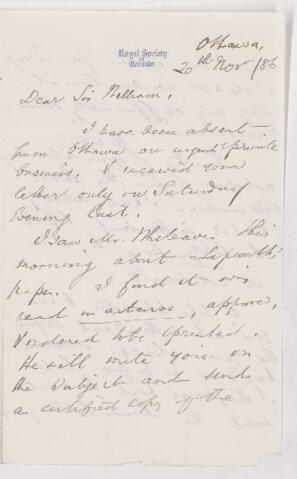 Royal Society
Canada
Ottawa,
20th Nov /86
Dear Sir William,
I have been absent
from Ottawa on urgent private
business, & received your
letter only on Saturday
Evening last.
I saw Mr. Whiteaves this
morning about Lapworth's
paper. I find it was
read in extenso, approved,
& ordered to be printed.
He will write you on
the subject and send
a certified copy of the